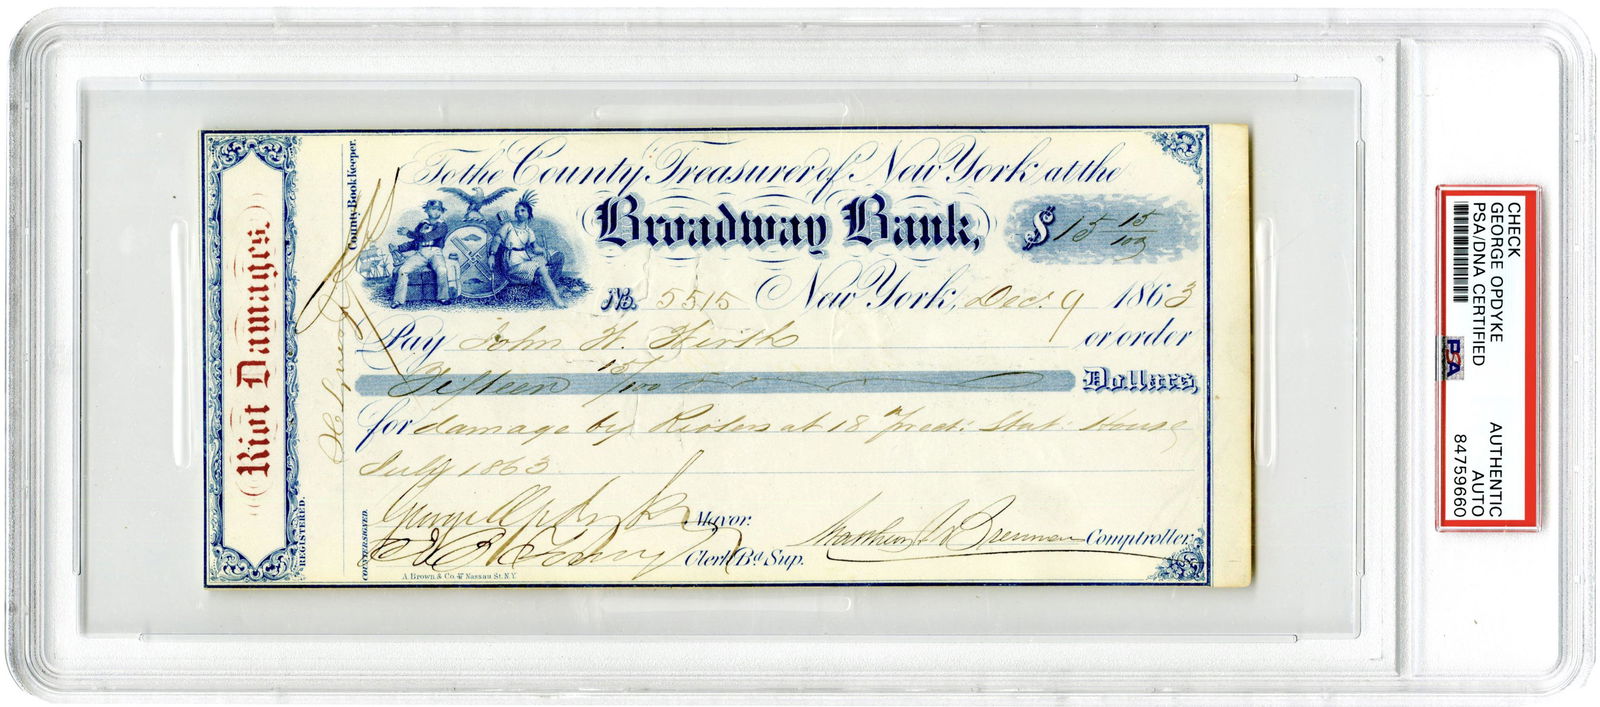 Riot Damages.
REGISTERED.
County Book Keeper.
To the County Treasurer of New York at the
Broadway Bank,
$ 15 15/100
No. 5515 New York, Dec. 9 1863
Pay John W. or order
Fifteen 15/100 Dollars,
for damage by Rioters at 18 Prect. Stat. House
July 1863
COUNTERSIGNED.
George Opdyke Mayor.
Clerk Bd. Sup.
Matthew T. Brennan Comptroller.
A Brown & Co. 47 Nassau St. N.Y.
CHECK
GEORGE OPDYKE
PSA/DNA CERTIFIED
PSA
AUTHENTIC
AUTO
84759660